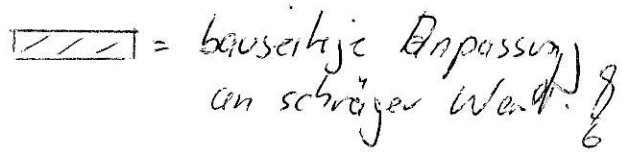 = bauseitige Anpassung
an schräger Wand.